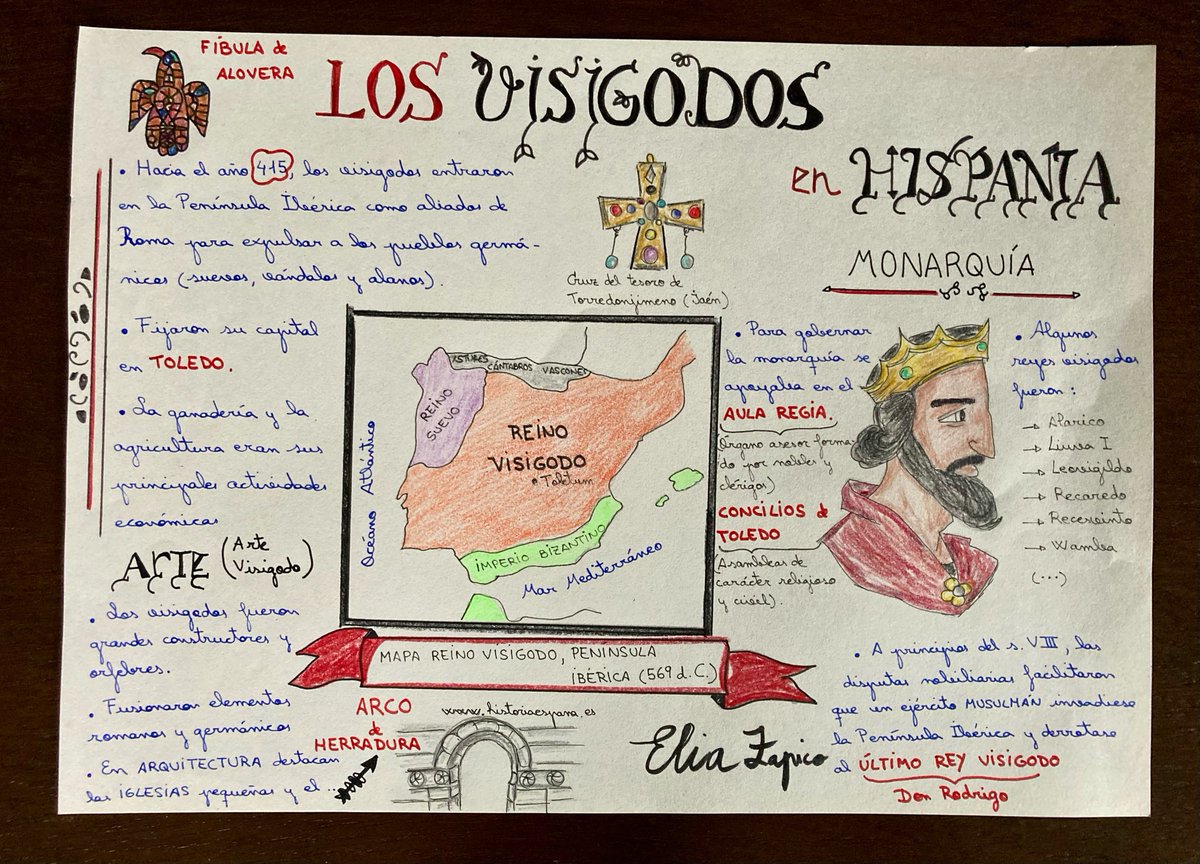 FÍBULA de
ALOVERA
LOS VISIGODOS
en HISPANIA
• Hacia el año 415, los visigodos entraron
en la Península Ibérica como aliados de
Roma para expulsar a los pueblos germá-
nicos (suevos, vándalos y alanos).
• Fijaron su capital
en TOLEDO.
• La ganadería y la
agricultura eran sus
principales actividades
económicas
Cruz del tesoro de
Torredonjimeno (Jaén)
ASTURES
CÁNTABROS
VASCONES
REINO
SUEVO
REINO
VISIGODO
Toletum
IMPERIO BIZANTINO
Océano Atlántico
Mar Mediterráneo
MAPA REINO VISIGODO, PENÍNSULA
IBÉRICA (569 d.C.)
www.historiaespana.es
MONARQUÍA
• Para gobernar
la monarquía se
apoyaba en el
AULA REGIA.
(Órgano asesor forma-
do por nobles y
clérigos)
CONCILIOS de
TOLEDO
(Asambleas de
carácter religioso
y civil).
• Algunos
reyes visigodos
fueron:
→ Alarico
→ Liuva I
→ Leovigildo
→ Recaredo
→ Recesvinto
→ Wamba
(...)
ARTE (Arte
Visigodo)
• Los visigodos fueron
grandes constructores y
orfebres.
• Fusionaron elementos
romanos y germánicos
• En ARQUITECTURA destacan
las IGLESIAS pequeñas y el ...
ARCO
de
HERRADURA
Elia Zapico
• A principios del s. VIII, las
disputas nobiliarias facilitaron
que un ejército MUSULMÁN invadiese
la Península Ibérica y derrotase
al ÚLTIMO REY VISIGODO
Don Rodrigo